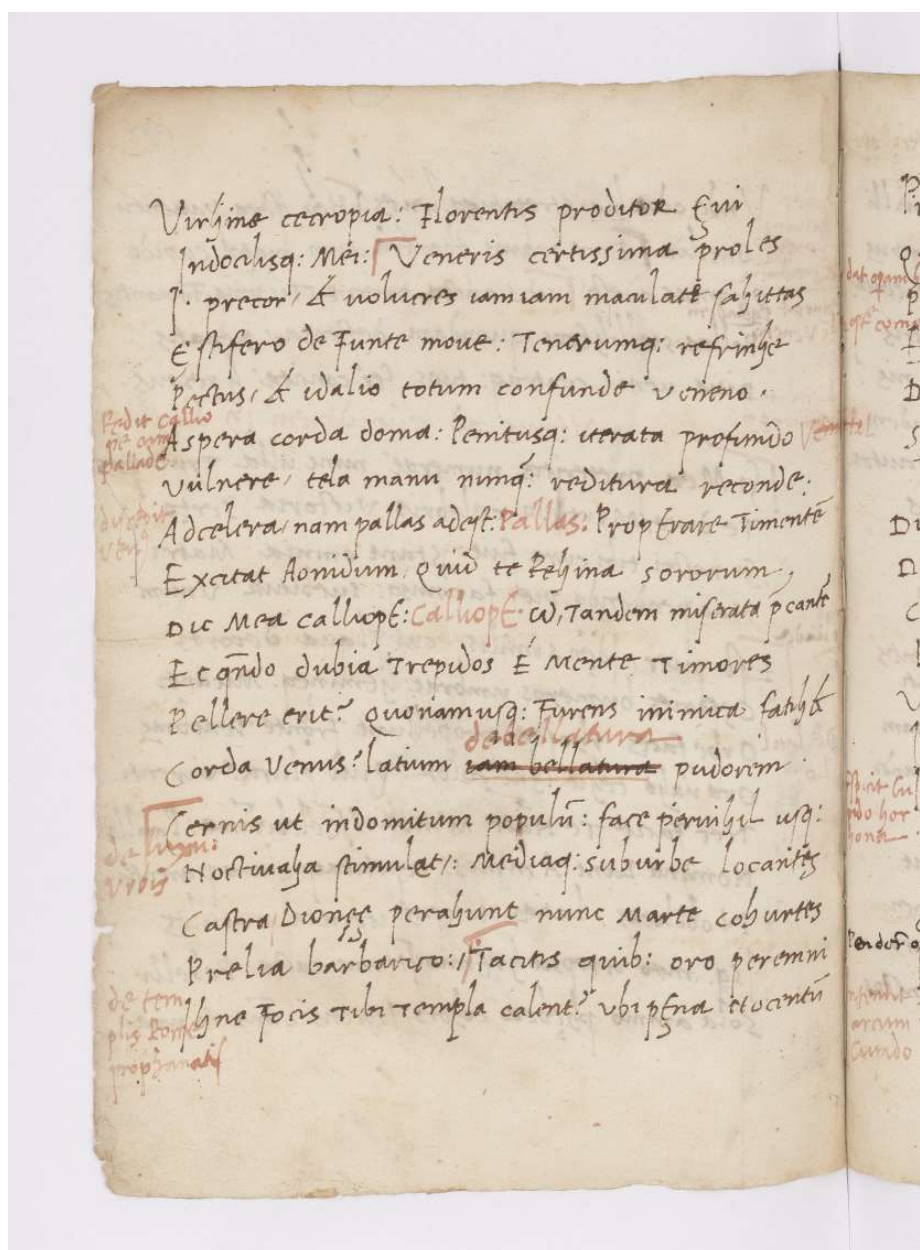 Virhine cecropia: Florentis proditor Ęui
Indocilisq: Mei: Veneris certissima proles
I. precor, & uolucres iamiam maculatę sahittas
Ęstifero de Funte move: Tenerumq: refrinhe
Pectus, & idalio totum confunde veneno.
Redit callio
pe cum
pallade.
Aspera corda doma: Penitusq: iterata profundo
Vulnere, tela manu nunq̃: reditura reconde:
Adcelera, nam pallas adest: Pallas: PropErare Timentẽ
Excitat Aonidum, Quid te Rehina sororum,
Dic Mea calliopE: CalliopE. ω, Tandem misErata p̃cantẽ
Ecq̃ndo dubia Trepidos É Mente Timores
Pellere erit? Quoniamusq: Furens inimica fatih&
debellatura
Corda Venus? latium iam bellatura pudorem.
Cernis ut indomitum populũ: face pervihil usq:
de luxu:
Vrbis
Noctivaha stimulat,: Mediaq: suburbe locantes
Castra Dioneę perahunt nunc Marte cohurtes
Prelia barbarico:, Tacitis quib: oro peremni
Ihne Focis Tibi Templa calent? Vbi pęna
de tem
plis Rome
prophanatis